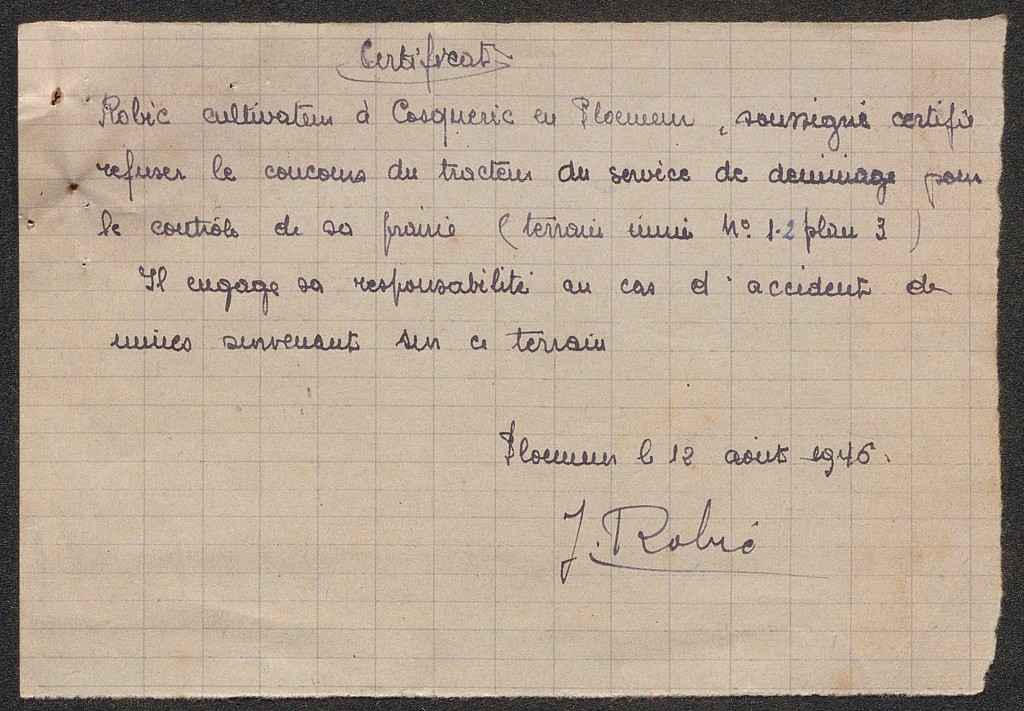 Certificat
Robic cultivateur à Cosqueric en Ploemeur, soussigné certifie
refuser le concours du tracteur du service de deminage pour
le contrôle de sa prairie (terrain miné N° 1-2 plan 3)
Il engage sa responsabilité au cas d'accident de
mines survenant sur ce terrain
Ploemeur le 12 août 1946.
J. Robic